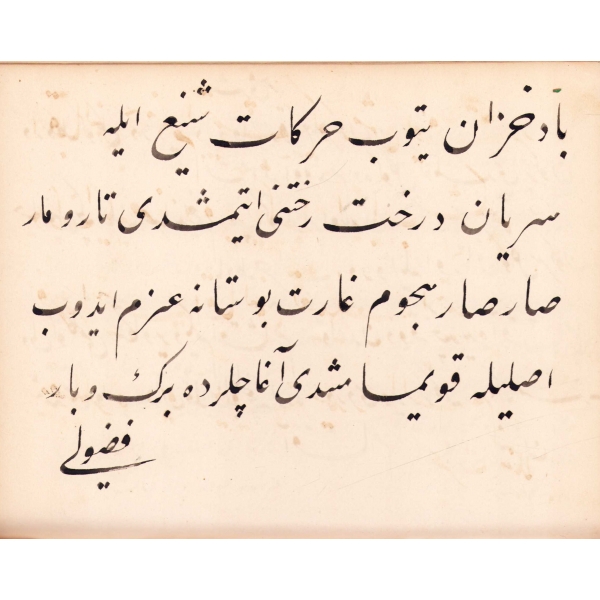 باد خزان یتوب حرکات شنیع ایله
سریان درخت رختنی ایتمشدی تار و مار
صارصار هجوم غارت بوستانه عزم ایدوب
اصلیله قویمامشدی آغاچلرده برک و بار
فضولی